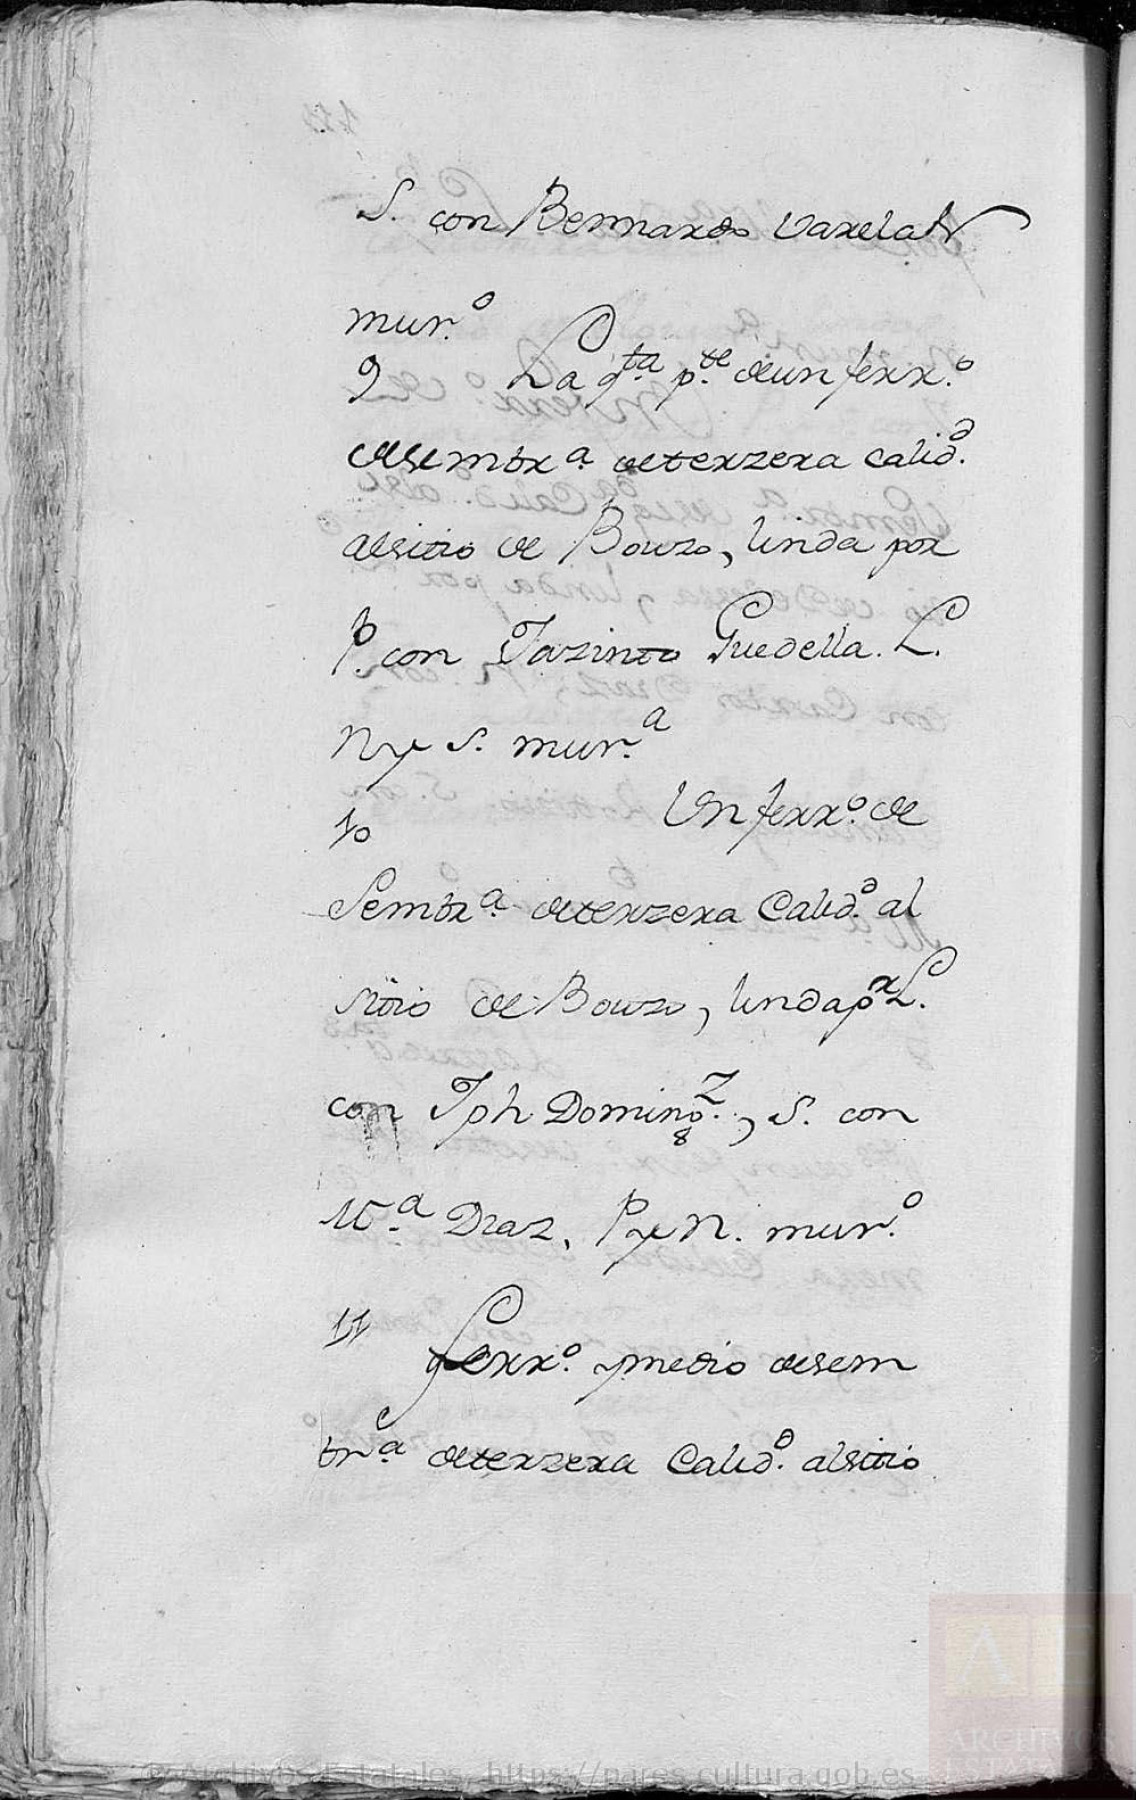 S. con Bernardo Varela N
mur.º
9 La q.ta p.te de un ferr.º
de sembr.a de terzera calid.d
al sitio de Bouzo, linda por
P. con Jazinto Guedella. L.
N y S. mur.a
10 Un ferr.º de
Sembr.a de terzera Calid.d al
sitio de Bouzo, linda p.r L.
con Jph Doming.z, S. con
M.a Diaz, P y N. mur.º
11 Ferr.º y medio de sem
br.a de terzera Calid.d al sitio
Archivos Estatales, https://pares.cultura.gob.es
AE
ARCHIVOS
ESTATALES